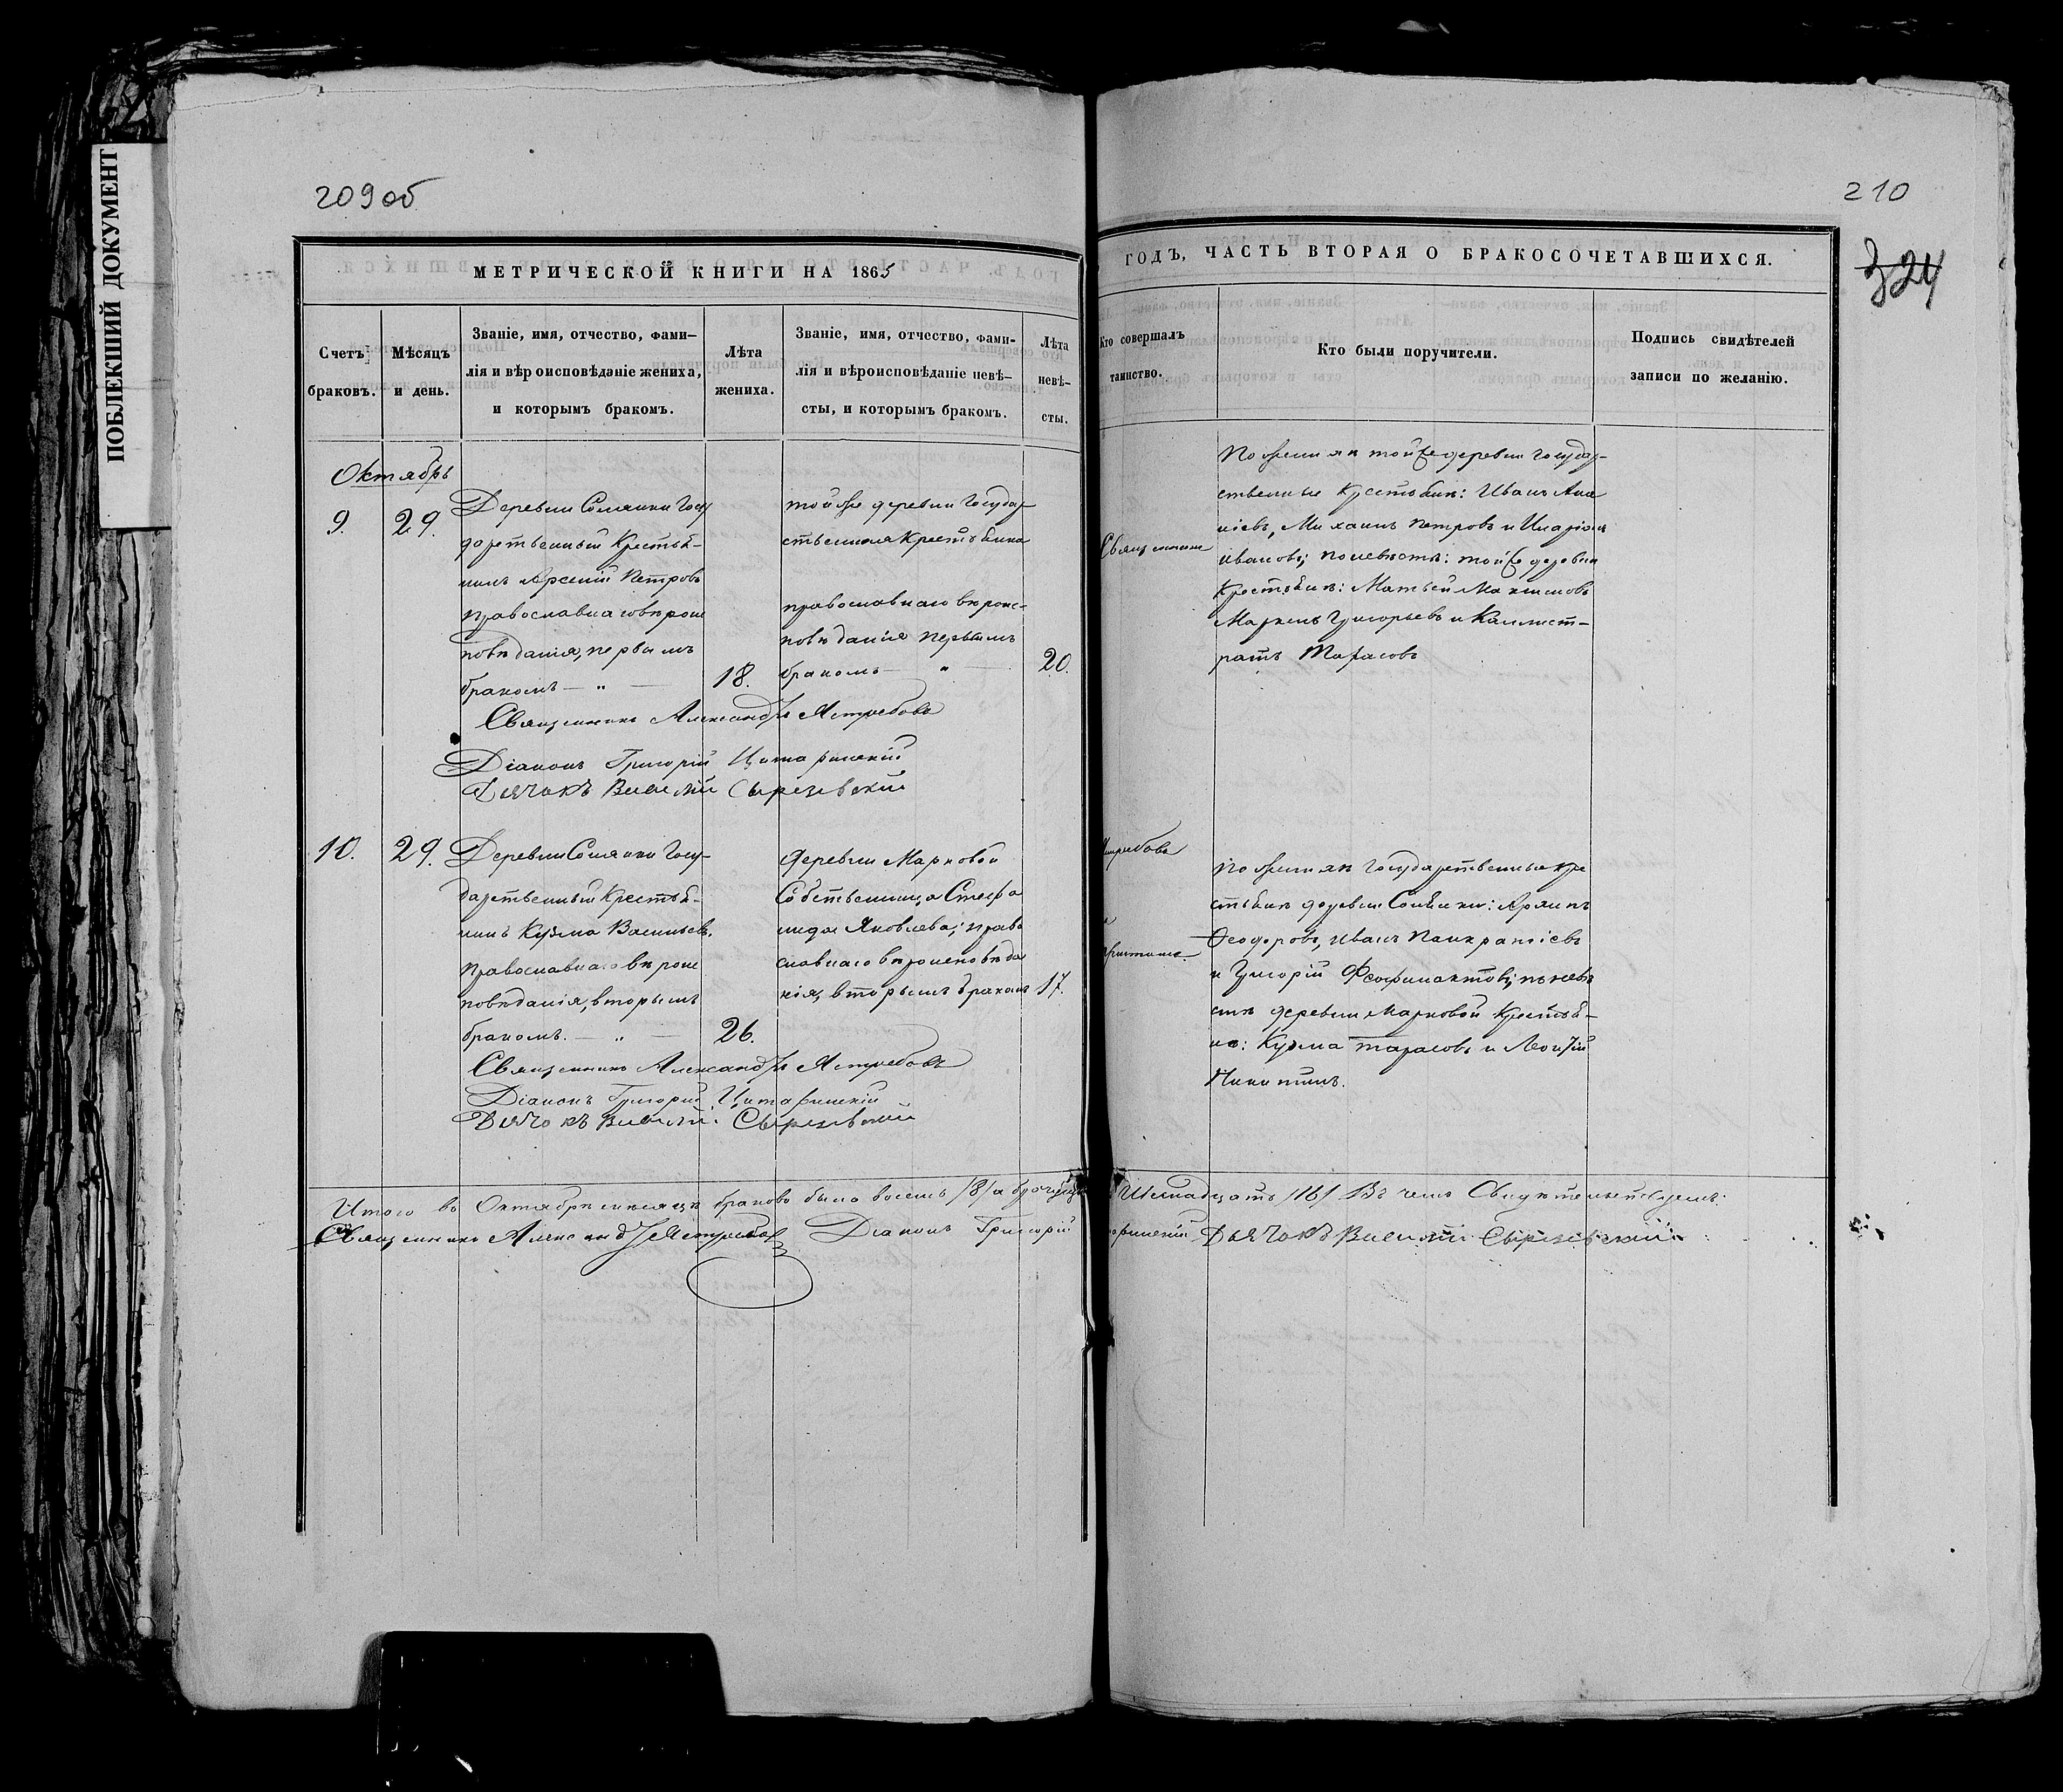 ПОБЛЕКШИЙ ДОКУМЕНТ
209об
МЕТРИЧЕСКОЙ КНИГИ НА 1865
Счетъ браковъ.
Мѣсяцъ и день.
Званіе, имя, отчество, фами-
лія и вѣроисповѣданіе жениха,
и которымъ бракомъ.
Лѣта
жениха.
Званіе, имя, отчество, фами-
лія и вѣроисповѣданіе невѣ-
сты, и которымъ бракомъ.
Лѣта
невѣ-
сты.
Октябрь
9. 29.
Деревни Солянки Госу
дарственный Крестья-
нинъ Арсеній Петровъ
православнаго вѣроис
повѣданія, первымъ
бракомъ — „ —
18.
той же деревни Государ-
ственная Крестьянка
православнаго вѣроис-
повѣданія первымъ
бракомъ — „ —
20.
Священникъ Александръ Ястребовъ
Діаконъ Григорій
Дьячокъ Василій
10. 29.
Деревни Солянки Госу-
дарственный Крестья-
нинъ Кузма Васильевъ,
православнаго вѣроис
повѣданія, вторымъ
бракомъ. — „ —
26.
Деревни Марковой
Собственница Стефа
нида Яковлева; право
славнаго вѣроисповѣда
нія, вторымъ бракомъ
17.
Священникъ Александръ Ястребовъ
Діаконъ Григорій
Дьячокъ Василій
Итого въ Октябрѣ мѣсяцѣ браковъ было восемь /8/ а
Священникъ Александръ Ястребовъ Діаконъ Григорій
210
324
ГОДЪ, ЧАСТЬ ВТОРАЯ О БРАКОСОЧЕТАВШИХСЯ.
Кто совершалъ
таинство.
Кто были поручители.
Подпись свидѣтелей
записи по желанію.
Священникъ
По женихѣ той же деревни Государ-
ственные Крестьяне: Иванъ Ана
ніевъ, Михаилъ Петровъ и Иларіонъ
Ивановъ; по невѣстѣ: той же деревни
Крестьяне: Матвей Максимовъ
Маркелъ Григорьевъ и Каллист-
ратъ Тарасовъ
По женихѣ Государственные кре
стьяне деревни Солянки:
Ѳеодоровъ, Иванъ Панкратіевъ
и Григорій Феофилактовъ; по невѣ
стѣ деревни Марковой Крестья-
не: Кузма Тарасовъ и Леонтій
Никитинъ.
Шестнадцать /16/ Въ чемъ Свидѣтельствуемъ:
Дьячокъ Василій